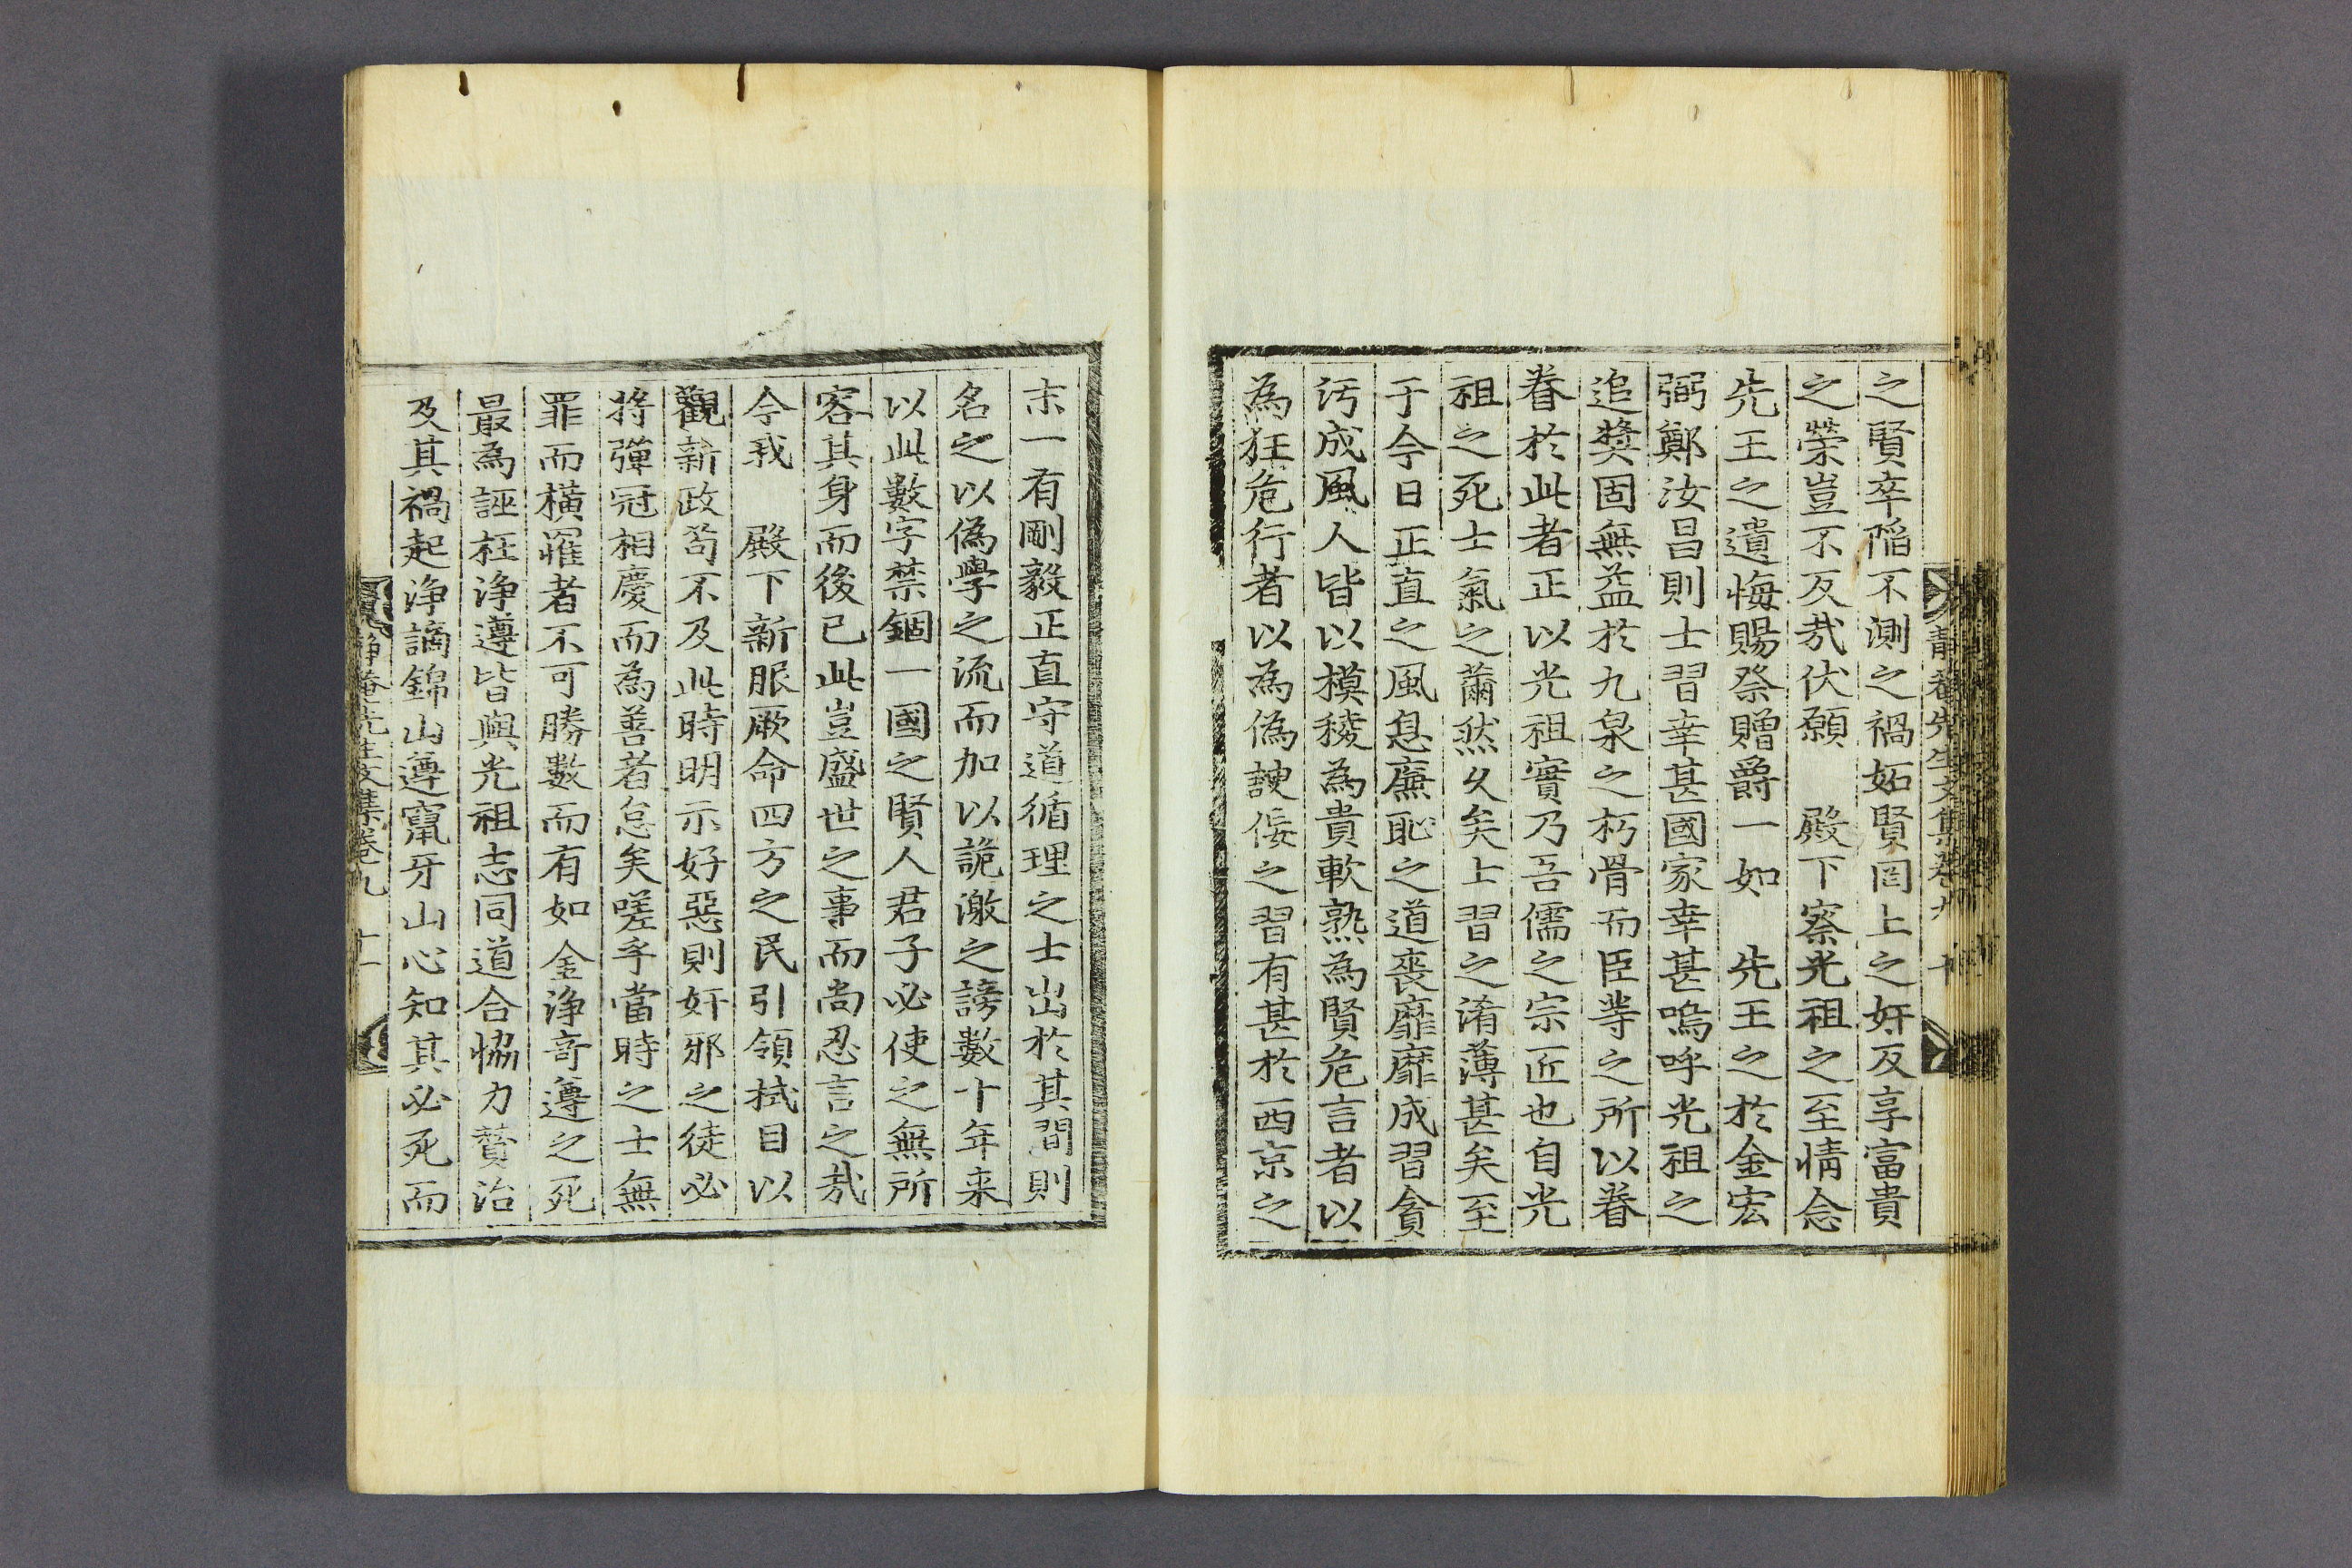 之賢卒陷不測之禍妬賢罔上之奸反享富貴
之榮豈不反㢤伏願　殿下察光祖之至情念
先王之遺悔賜祭贈爵一如　先王之於金宏
弼鄭汝昌則士習幸甚國家幸甚嗚呼光祖之
追奬固無益於九泉之朽骨而臣等之所以眷
眷於此者正以光祖實乃吾儒之宗匠也自光
祖之死士氣之薾然久矣士習之淆薄甚矣至
于今日正直之風息廉恥之道喪靡靡成習貪
汚成風人皆以模稜為貴軟熟為賢危言者以
為狂危行者以為偽諛佞之習有甚於西京之
靜菴先生文集卷九　十
末一有剛毅正直守道循理之士出於其間則
名之以僞學之流而加以詭激之謗數十年来
以此數字禁錮一國之賢人君子必使之無所
容其身而後已此豈盛世之事而尚忍言之㢤
今我　殿下新服厥命四方之民引領拭目以
觀新政苟不及此時明示好惡則奸邪之徒必
將彈冠相慶而為善者怠矣嗟乎當時之士無
罪而橫罹者不可勝數而有如金淨奇遵之死
最為誣枉淨遵皆與光祖志同道合恊力贊治
及其禍起淨謫錦山遵竄牙山心知其必死而
靜菴先生文集卷九　十一